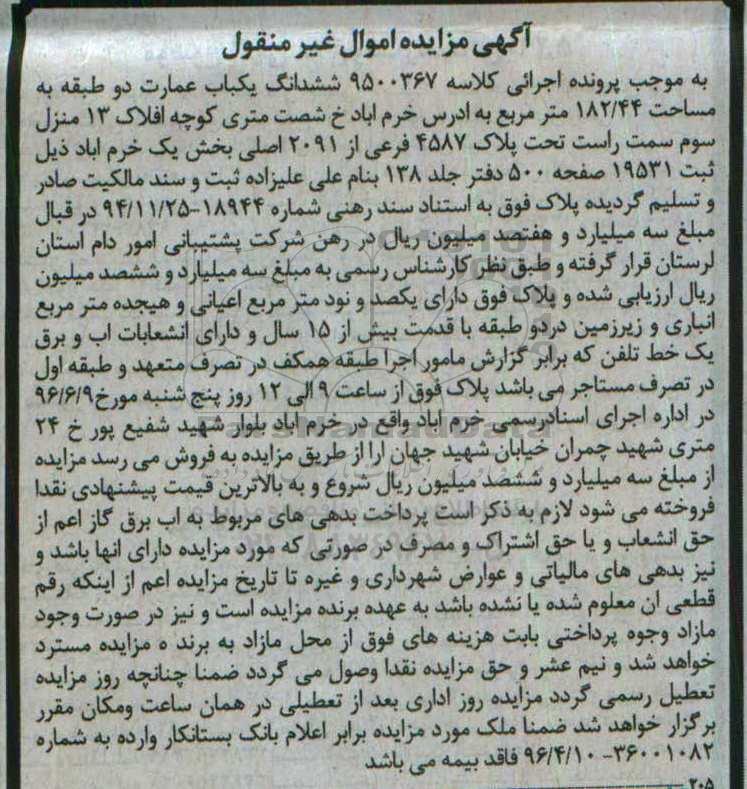 آگهی مزایده اموال غیر منقول
به موجب پرونده اجرائی کلاسه ۹۵۰۰۳۶۷ ششدانگ یکباب عمارت دو طبقه به
مساحت ۱۸۲/۴۴ متر مربع به ادرس خرم اباد خ شصت متری کوچه افلاک ۱۳ منزل
سوم سمت راست تحت پلاک ۴۵۸۷ فرعی از ۲۰۹۱ اصلی بخش یک خرم اباد ذیل
ثبت ۱۹۵۳۱ صفحه ۵۰۰ دفتر جلد ۱۳۸ بنام علی علیزاده ثبت و سند مالکیت صادر
و تسلیم گردیده پلاک فوق به استناد سند رهنی شماره ۱۸۹۴۴-۹۴/۱۱/۲۵ در قبال
مبلغ سه میلیارد و هفتصد میلیون ریال در رهن شرکت پشتیبانی امور دام استان
لرستان قرار گرفته و طبق نظر کارشناس رسمی به مبلغ سه میلیارد و ششصد میلیون
ریال ارزیابی شده و پلاک فوق دارای یکصد و نود متر مربع اعیانی و هیجده متر مربع
انباری و زیرزمین دردو طبقه با قدمت بیش از ۱۵ سال و دارای انشعابات اب و برق
یک خط تلفن که برابر گزارش مامور اجرا طبقه همکف در تصرف متعهد و طبقه اول
در تصرف مستاجر می باشد پلاک فوق از ساعت ۹ الی ۱۲ روز پنج شنبه مورخ۹۶/۶/۹
در اداره اجرای اسنادرسمی خرم اباد واقع در خرم اباد بلوار شهید شفیع پور خ ۲۴
متری شهید چمران خیابان شهید جهان ارا از طریق مزایده به فروش می رسد مزایده
از مبلغ سه میلیارد و ششصد میلیون ریال شروع و به بالاترین قیمت پیشنهادی نقدا
فروخته می شود لازم به ذکر است پرداخت بدهی های مربوط به اب برق گاز اعم از
حق انشعاب و یا حق اشتراک و مصرف در صورتی که مورد مزایده دارای انها باشد و
نیز بدهی های مالیاتی و عوارض شهرداری و غیره تا تاریخ مزایده اعم از اینکه رقم
قطعی ان معلوم شده یا نشده باشد به عهده برنده مزایده است و نیز در صورت وجود
مازاد وجوه پرداختی بابت هزینه های فوق از محل مازاد به برند ه مزایده مسترد
خواهد شد و نیم عشر و حق مزایده نقدا وصول می گردد ضمنا چنانچه روز مزایده
تعطیل رسمی گردد مزایده روز اداری بعد از تعطیلی در همان ساعت ومکان مقرر
برگزار خواهد شد ضمنا ملک مورد مزایده برابر اعلام بانک بستانکار وارده به شماره
۳۶۰۰۱۰۸۲-۹۶/۴/۱۰ فاقد بیمه می باشد
۲۰۵